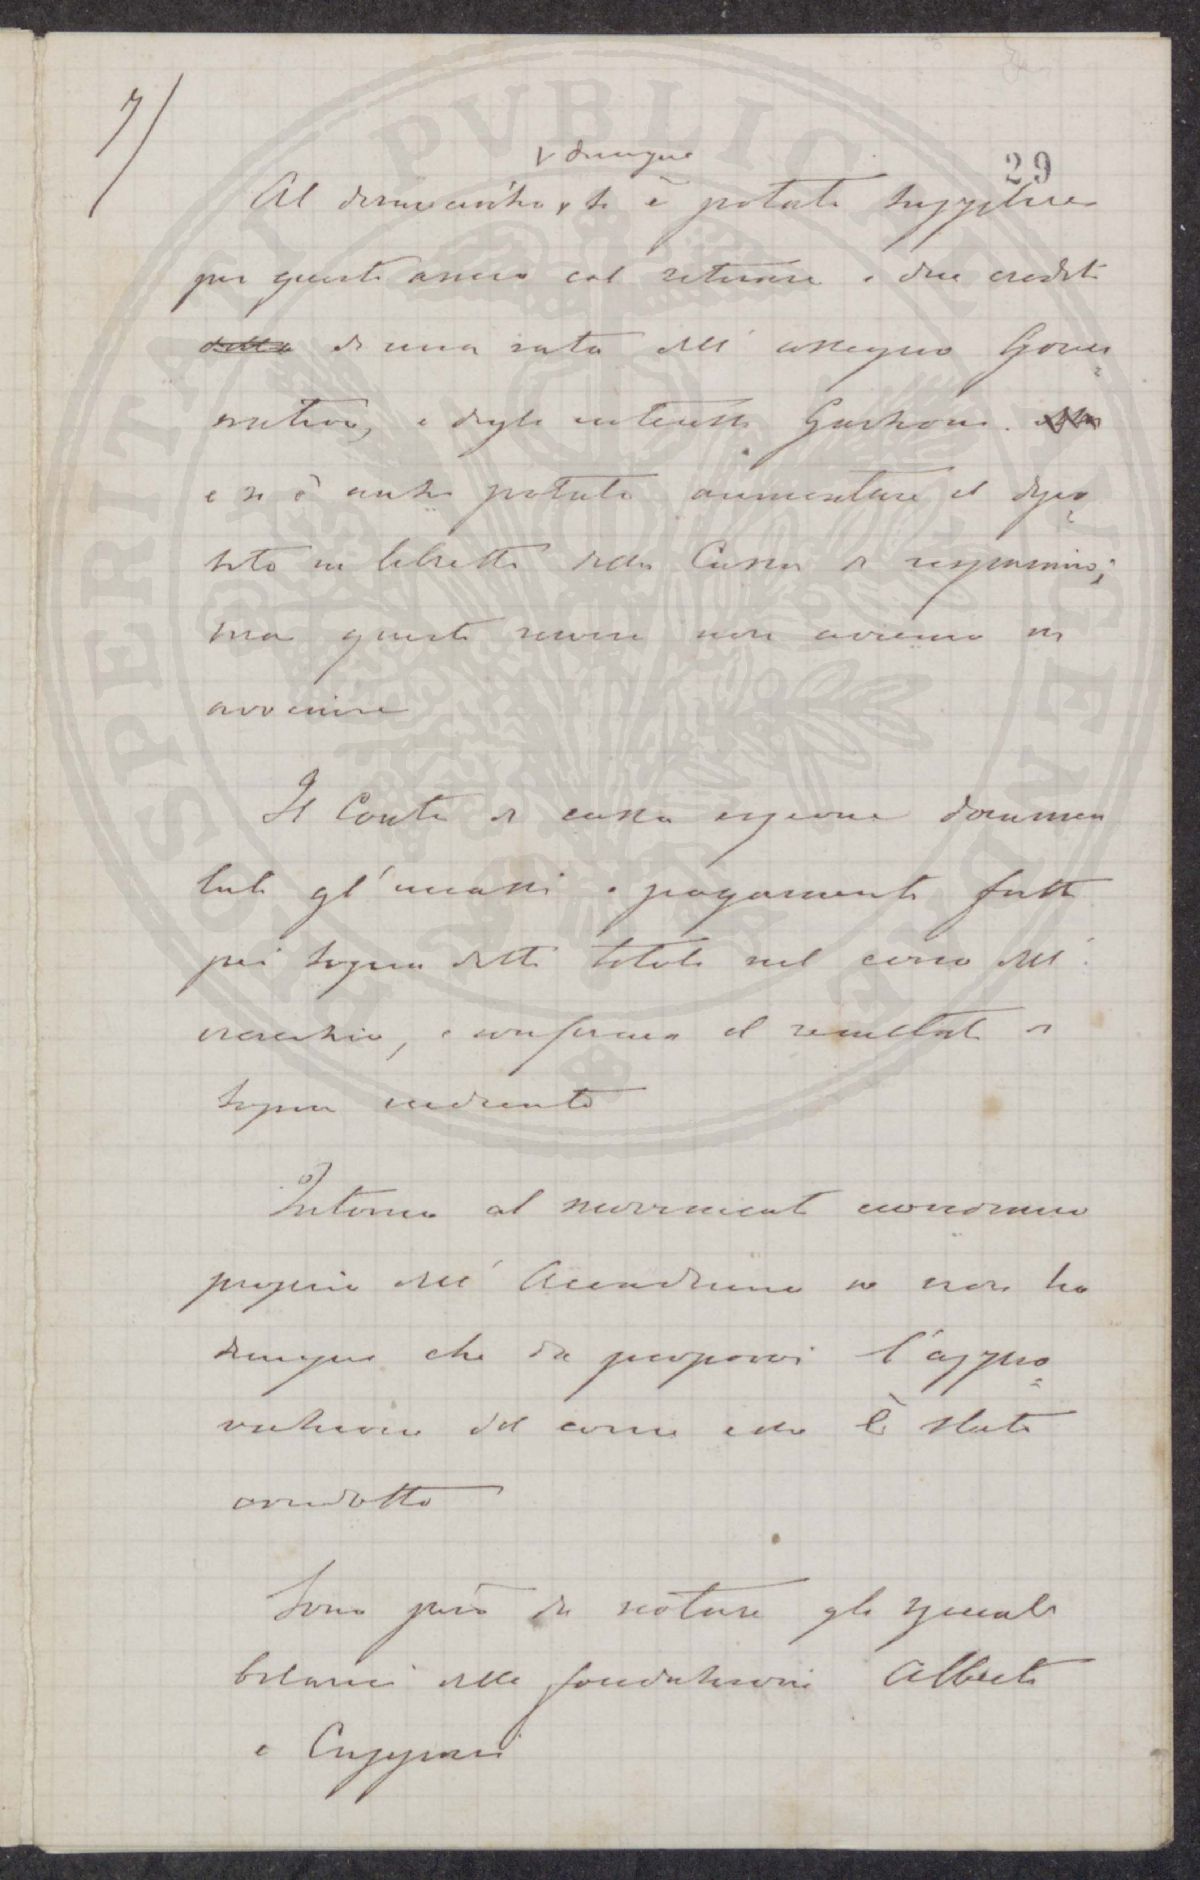 7/
29
v dunque
Al disavanzo, si è potuto supplire
per questo anno col ritirare i due crediti
della di una rata dell' assegno Gover
nativo, e degli interessi
e si è anche potuto aumentare il depo
sito in libretti della Cassa di risparmio;
ma questi nuovi non avremo in
avvenire
Il Conto di cassa espone documen
tati gl'incassi e pagamenti fatti
pei sopra detti titoli nel corso dell'
esercizio, e conferma il resultato di
sopra indicato
Intorno al movimento economico
proprio dell' Accademia io non ho
dunque che da proporvi l'appro
vazione del come esso è stato
condotto
Sono però da notare gli speciali
bilanci delle fondazioni Alberti
e Cuppari
PROSPERITATI PVBLICAE AVGENDAE